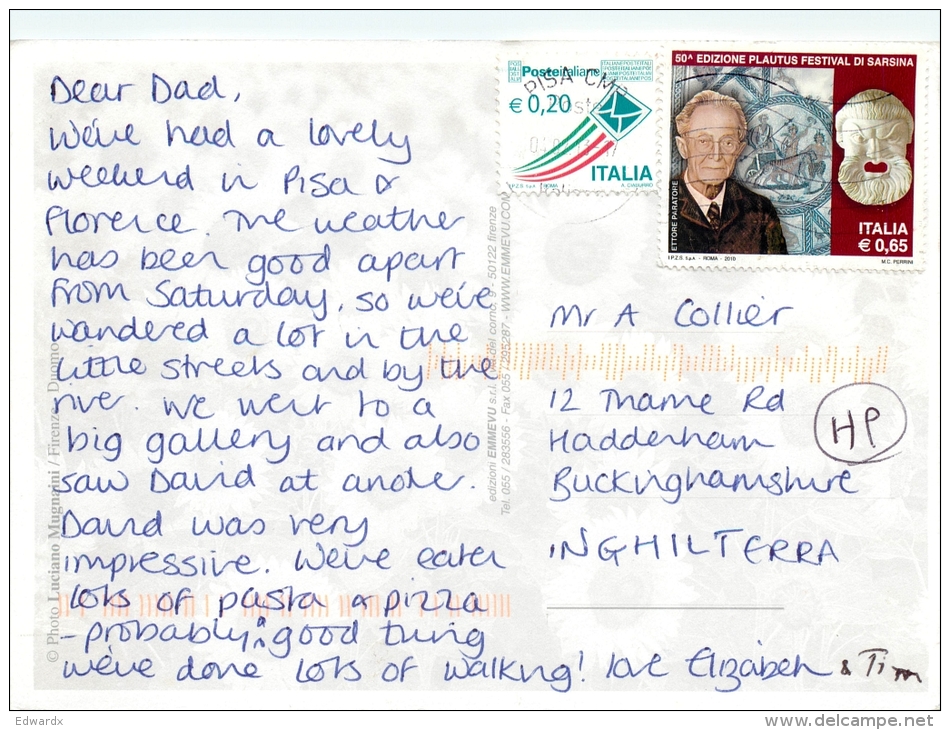 Dear Dad,
We've had a lovely
weekend in Pisa &
Florence. The weather
has been good apart
from Saturday, so we've
wandered a lot in the
little streets and by the
river. We went to a
big gallery and also
saw David at another.
David was very
impressive. We've eaten
lots of pasta & pizza
- probably a good thing
we've done lots of walking! love Elizabeth & Tim
Posteitaliane
€ 0,20
ITALIA
I.P.Z.S. S.p.A. - ROMA
PISA CMP
50ᴬ EDIZIONE PLAUTUS FESTIVAL DI SARSINA
ETTORE PARATORE
ITALIA
€ 0,65
I.P.Z.S. S.p.A. - ROMA - 2010
M.C. PERRINI
Mr A Collier
12 Thame Rd
Haddenham
Buckinghamshire
INGHILTERRA
HP
© Photo Luciano Mugnaini / Firenze - Duomo
edizioni EMMEVU s.r.l. 9 - 50122 firenze
Tel. 055 / 283556 - Fax 055 / 295287 - WWW.EMMEVU.COM
Edwardx
http://www.delcampe.net